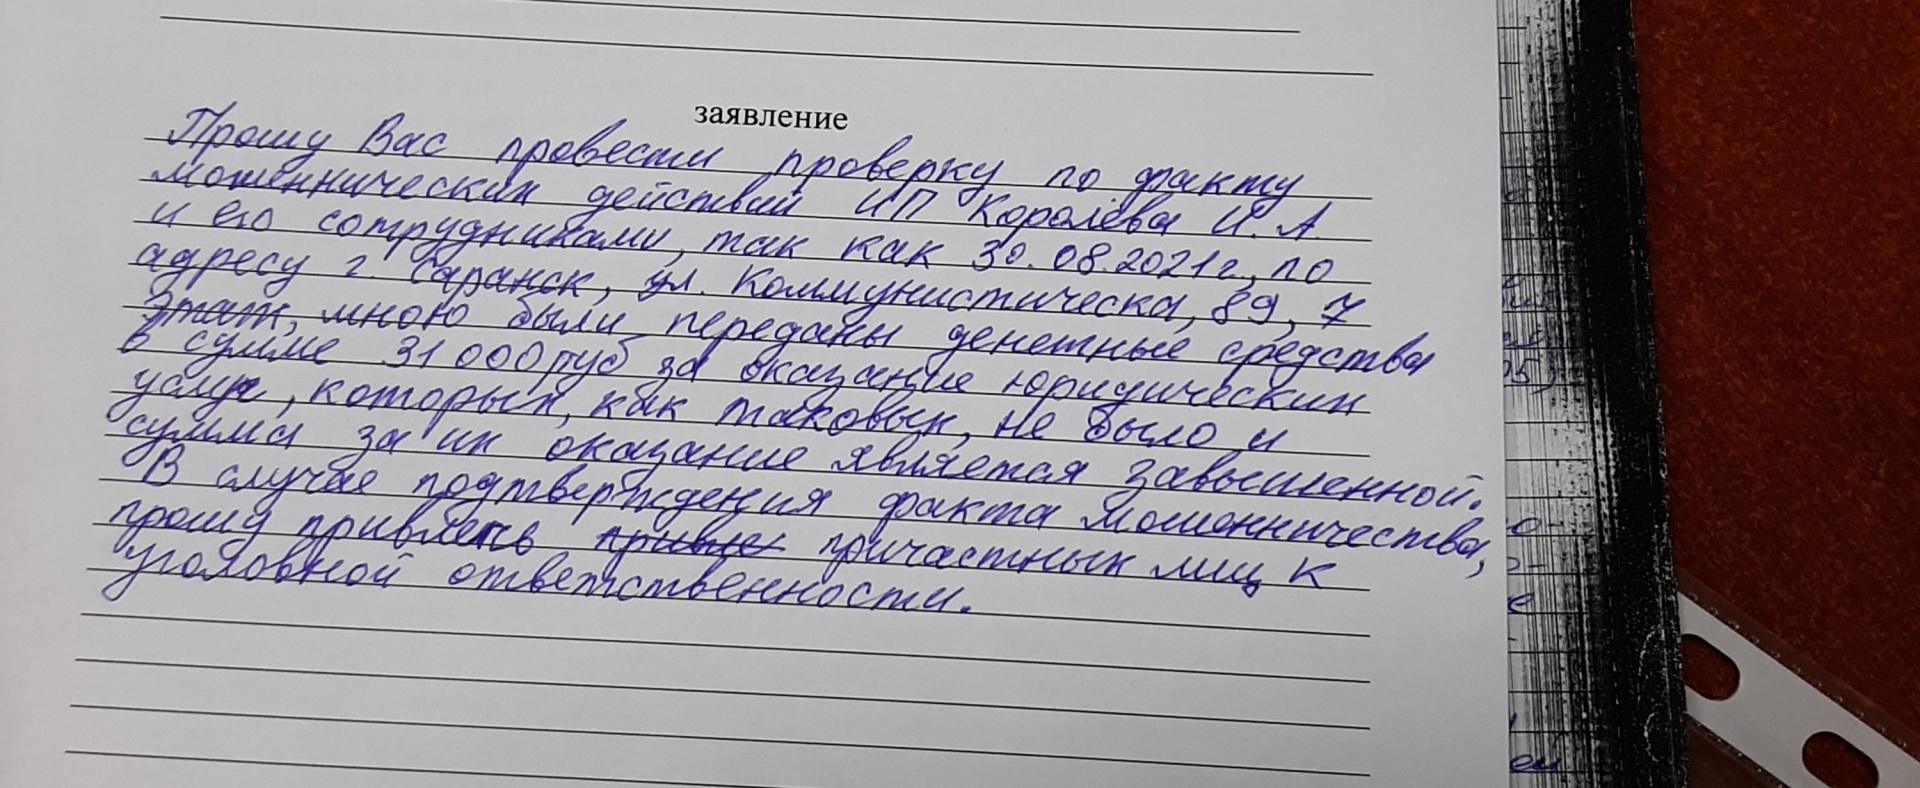 заявление
Прошу Вас провести проверку по факту
мошеннических действий ИП Королёва И.А.
и его сотрудниками, так как 30.08.2021г., по
адресу г. Саранск, ул. Коммунистическа, 89, 7
этаж, мною были переданы денежные средства
в сумме 31 000 руб за оказание юридических
услуг, которых, как таковых, не было и
сумма за их оказание является завышенной.
В случае подтверждения факта мошенничества,
прошу привлечь причастных лиц к
уголовной ответственности.